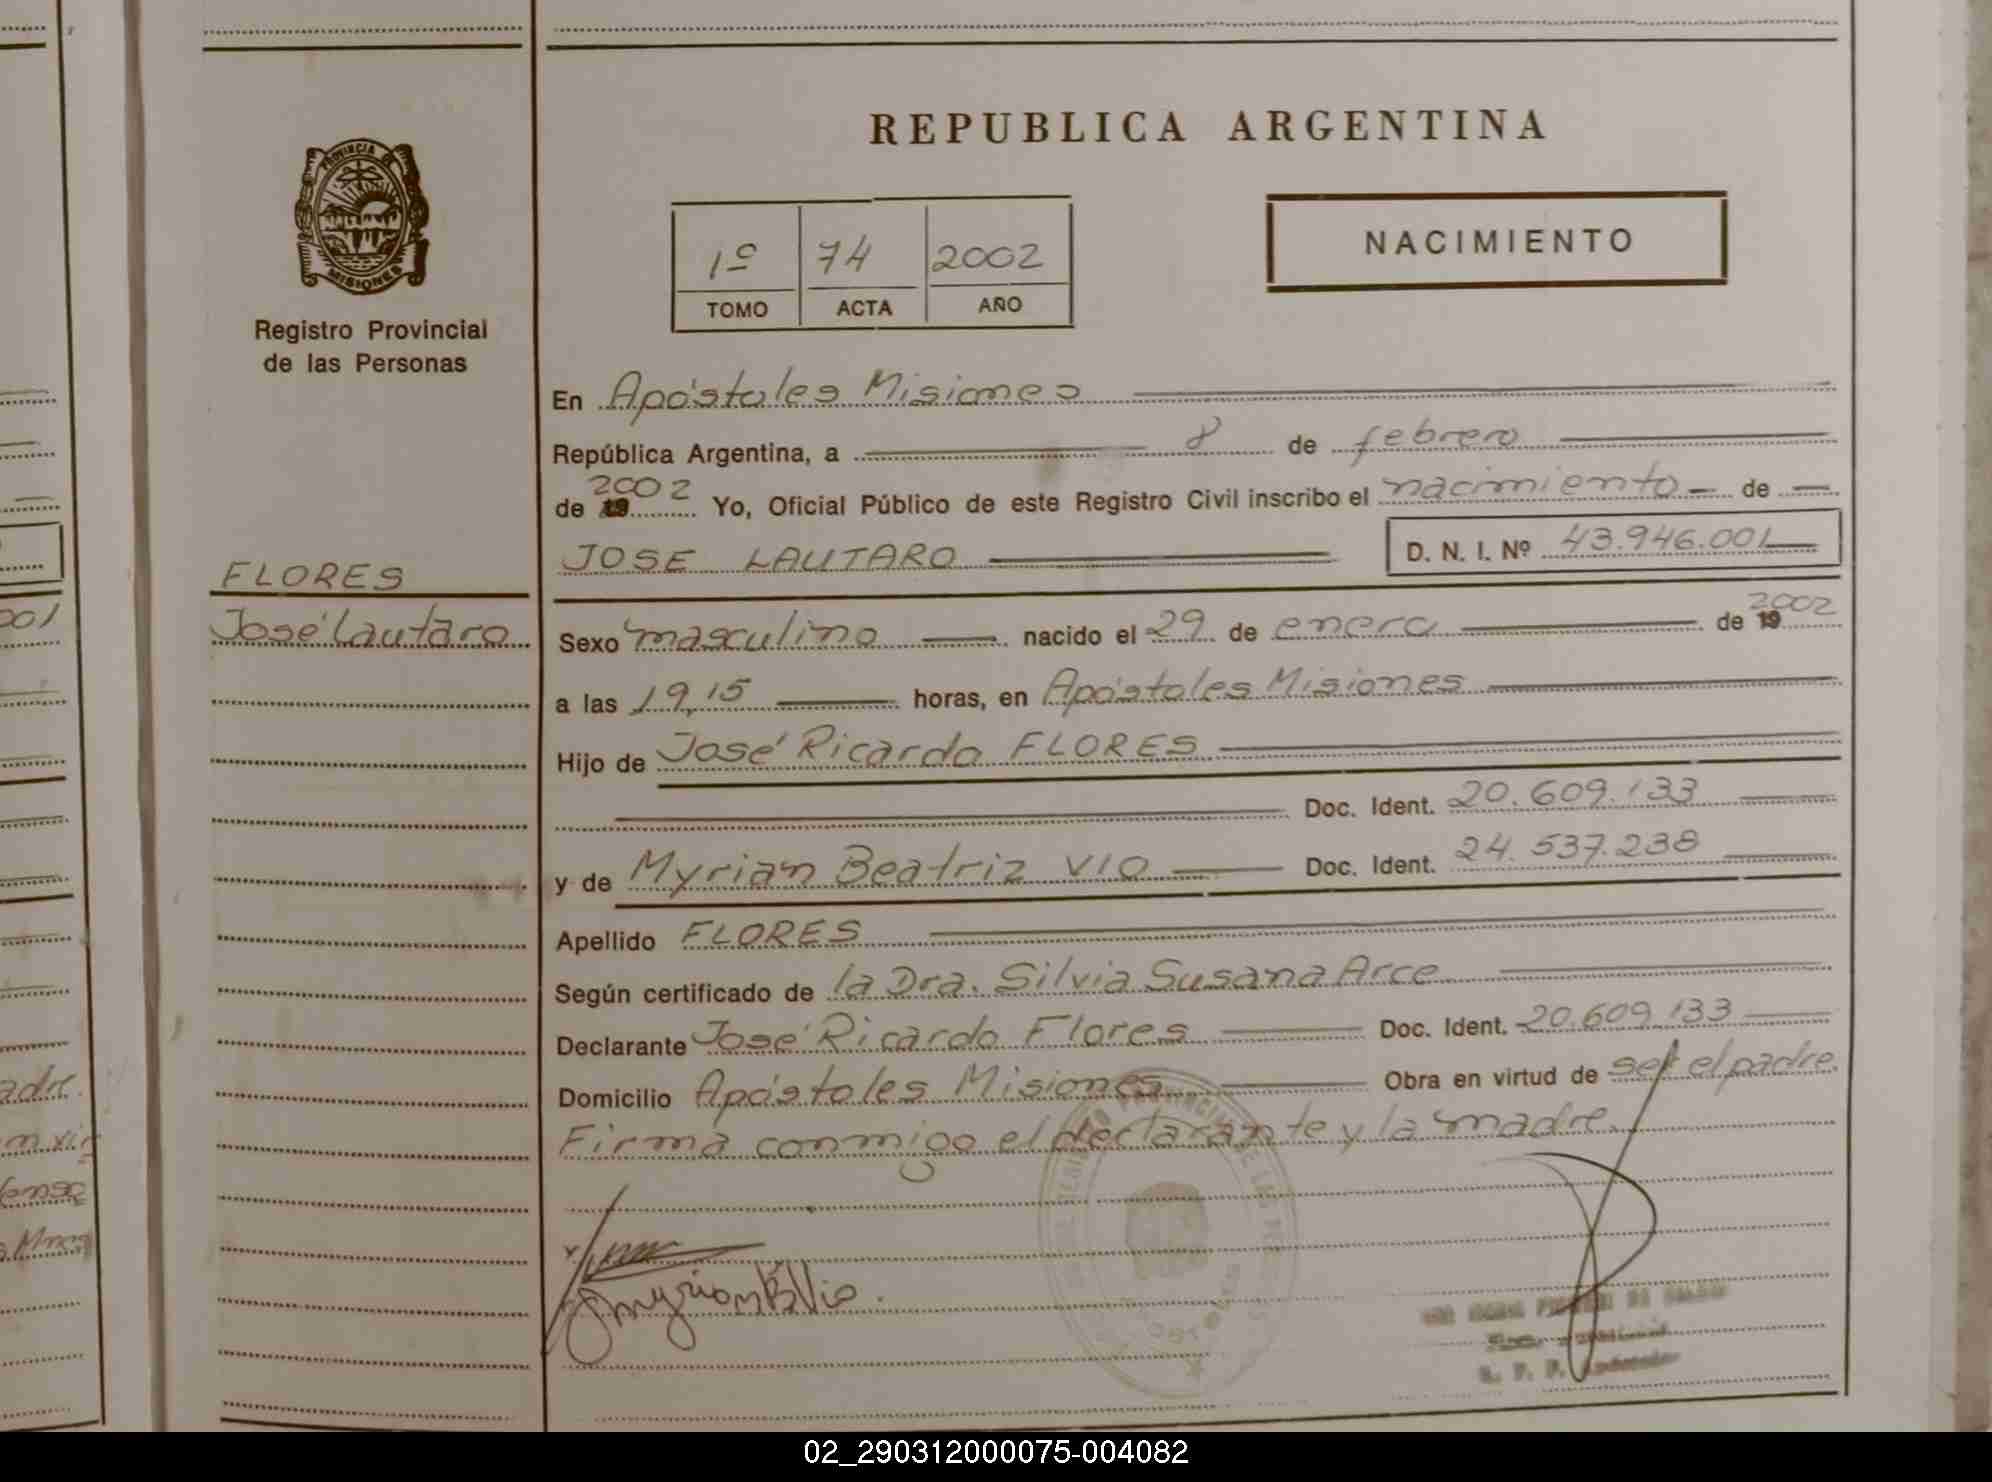 REPUBLICA ARGENTINA
PROVINCIA DE
MISIONES
Registro Provincial
de las Personas
1º 74 2002
TOMO ACTA AÑO
NACIMIENTO
En Apóstoles Misiones
República Argentina, a 8 de febrero
de 19 2002 Yo, Oficial Público de este Registro Civil inscribo el nacimiento de
JOSE LAUTARO D. N. I. Nº 43.946.001
FLORES
José Lautaro
Sexo masculino nacido el 29 de enero de 19 2002
a las 19,15 horas, en Apóstoles Misiones
Hijo de José Ricardo FLORES
Doc. Ident. 20.609.133
y de Myrian Beatriz VIO Doc. Ident. 24.537.238
Apellido FLORES
Según certificado de la Dra. Silvia Susana Arce
Declarante José Ricardo Flores Doc. Ident. 20.609.133
Domicilio Apóstoles Misiones Obra en virtud de ser el padre.
Firma conmigo el declarante y la madre.
001
adre.
02_290312000075-004082